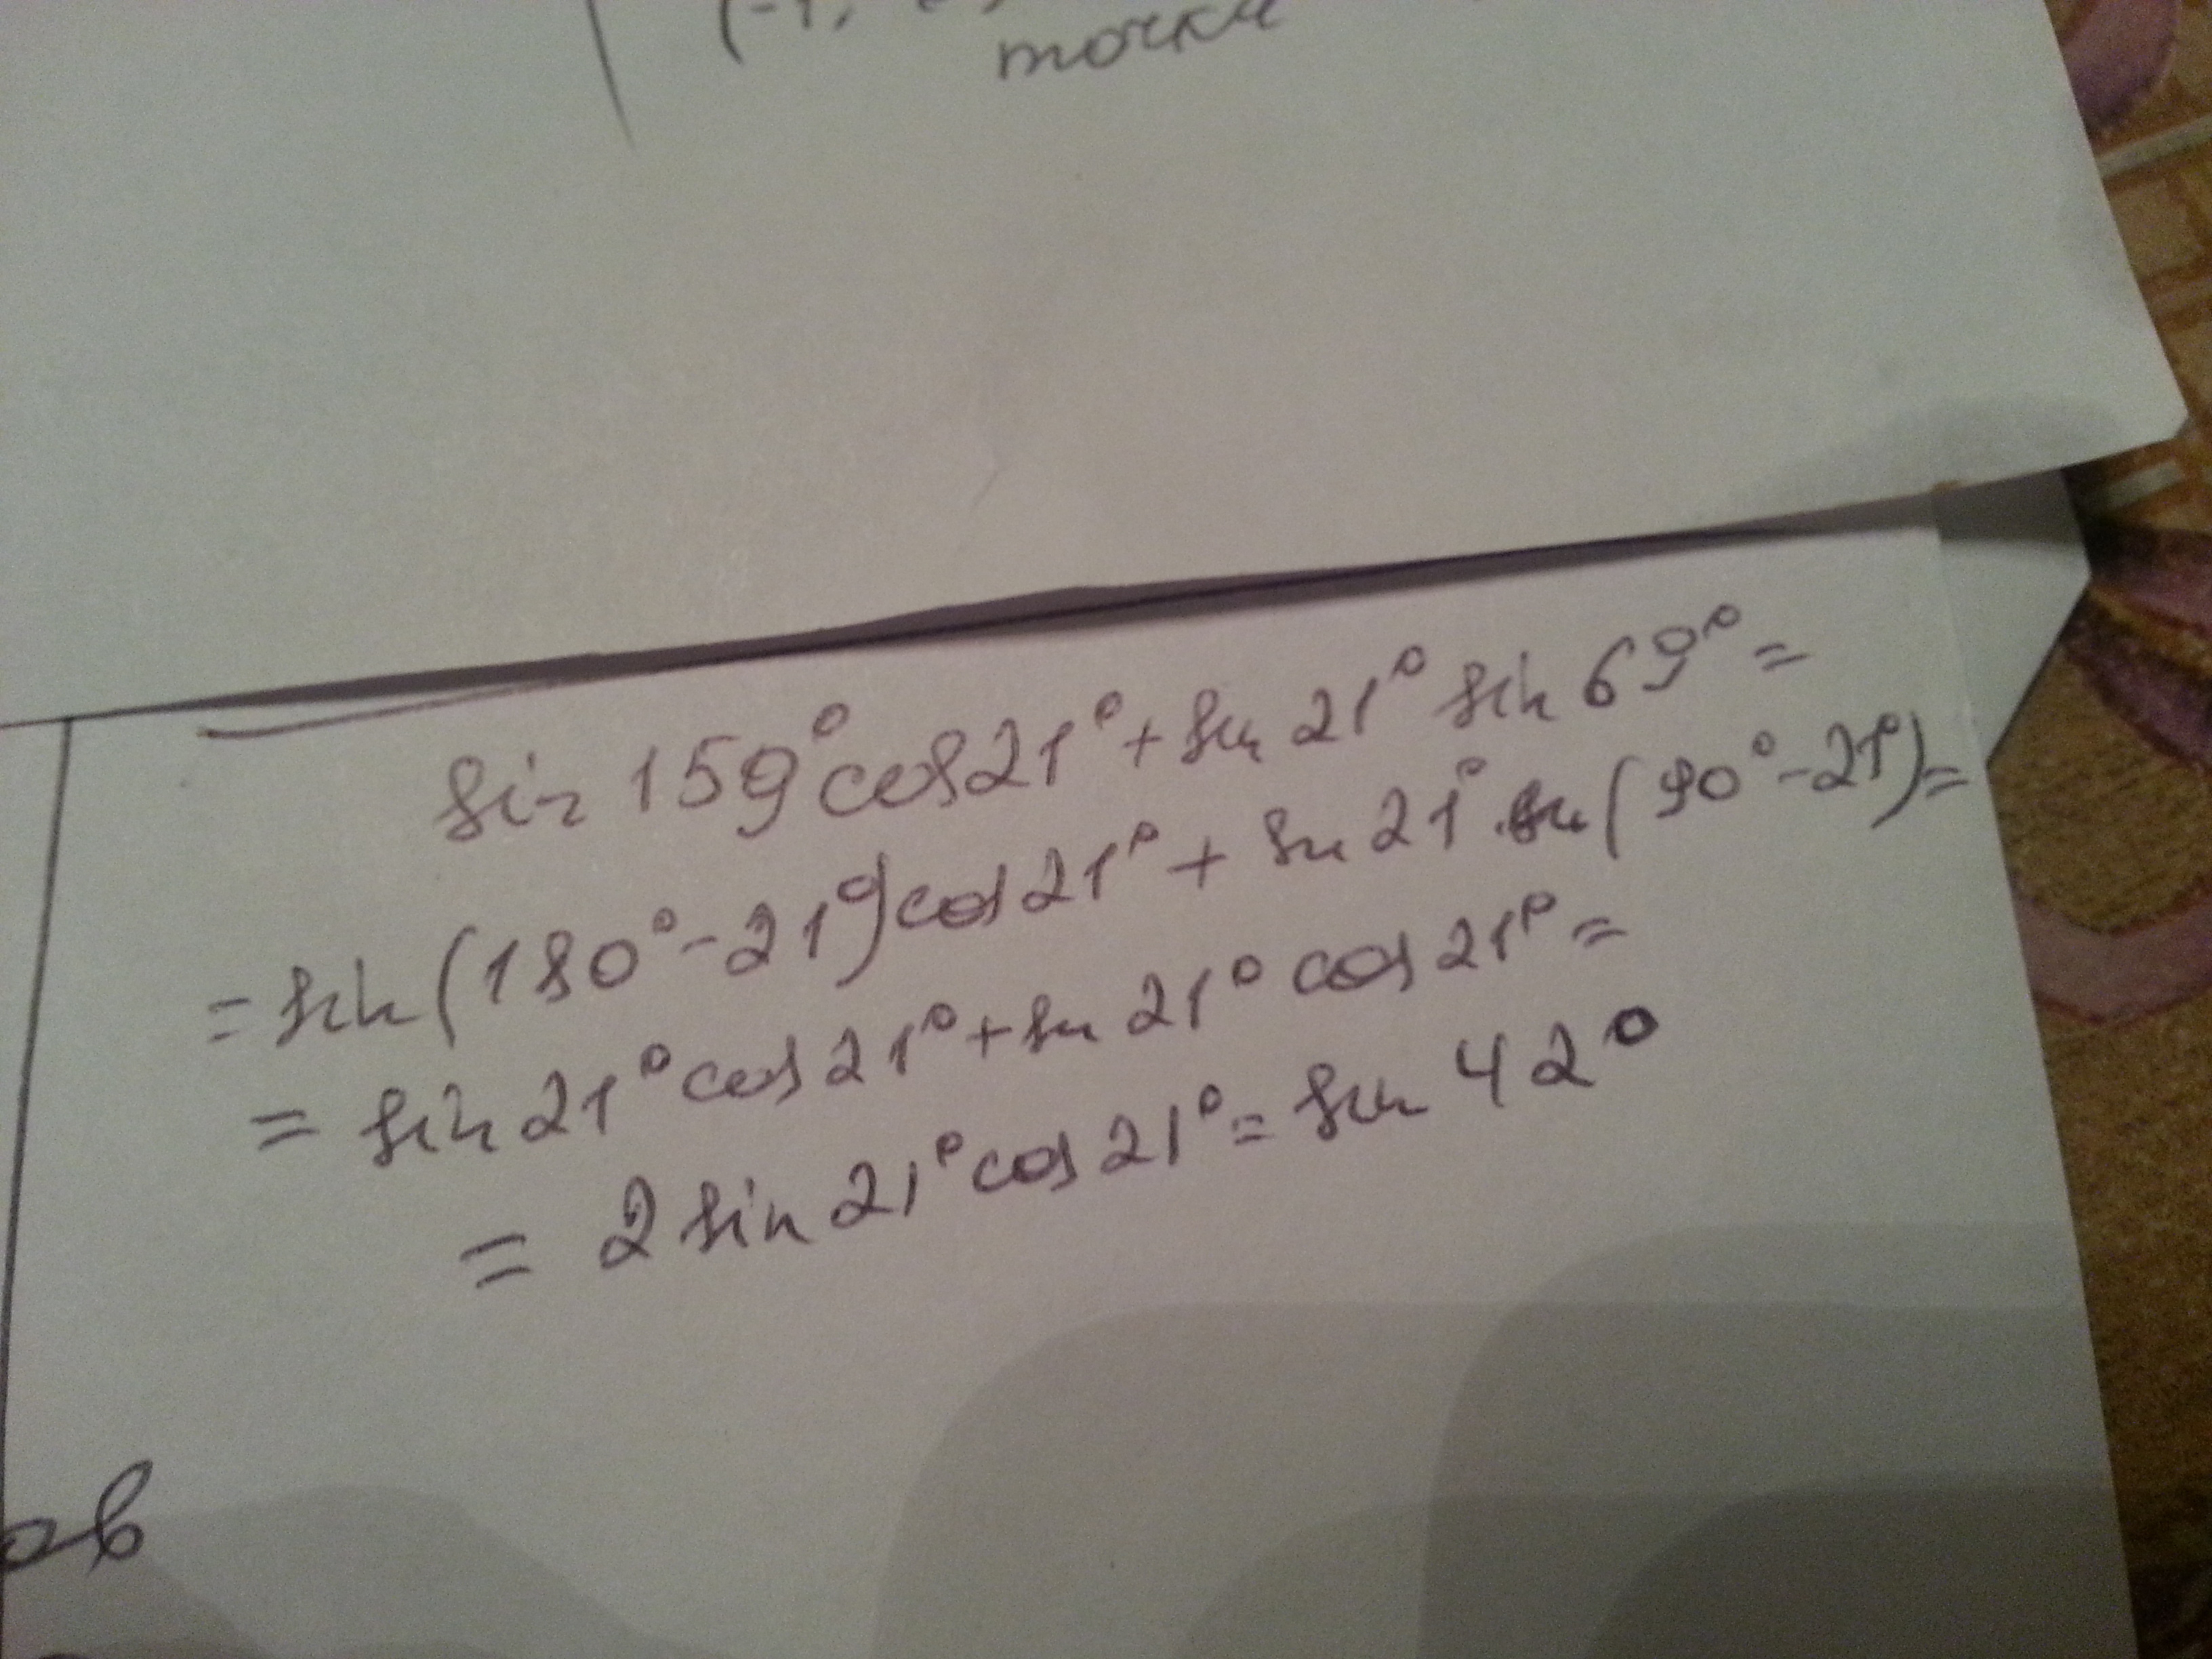 точки
sin 159° cos 21° + sin 21° sin 69° =
= sin (180° - 21°) cos 21° + sin 21° · sin (90° - 21°) =
= sin 21° cos 21° + sin 21° cos 21° =
= 2 sin 21° cos 21° = sin 42°
ов